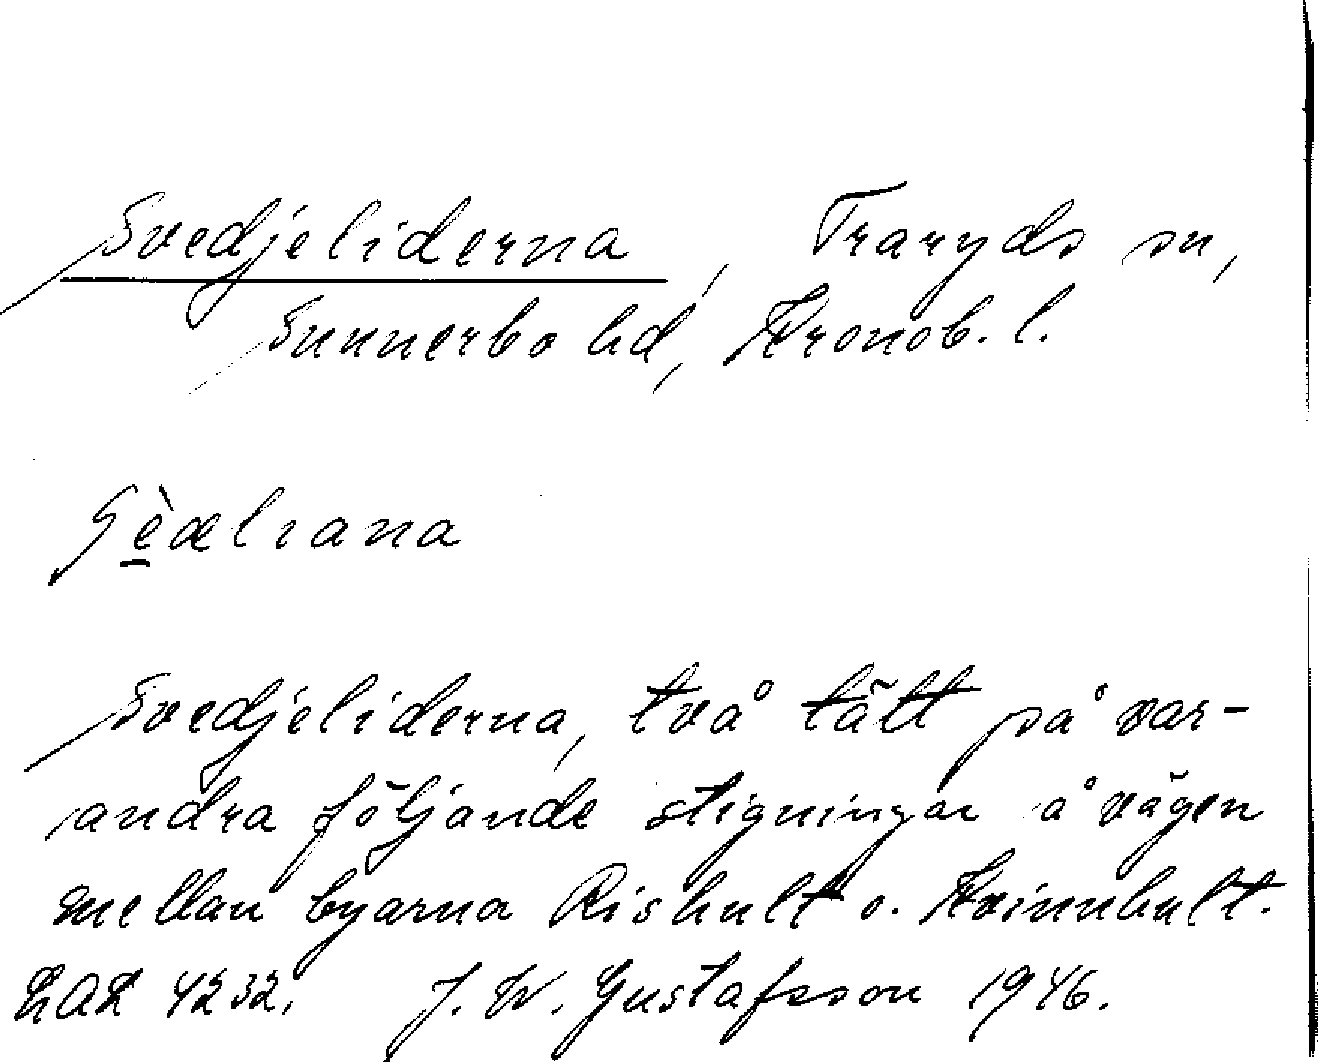 Svedjeliderna, Traryds sn,
Sunnerbo hd, Kronob. l.
Svedjeliderna, två tätt på var-
andra följande stigningar å vägen
mellan byarna Rishult o. Kvinnhult.
4232. J. W. Gustafsson 1946.